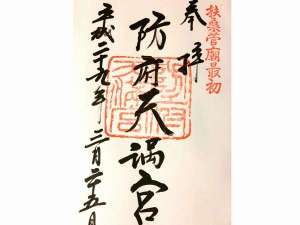 扶桑菅廟最初
奉拝
防府天満宮
平成二十九年三月二十五日